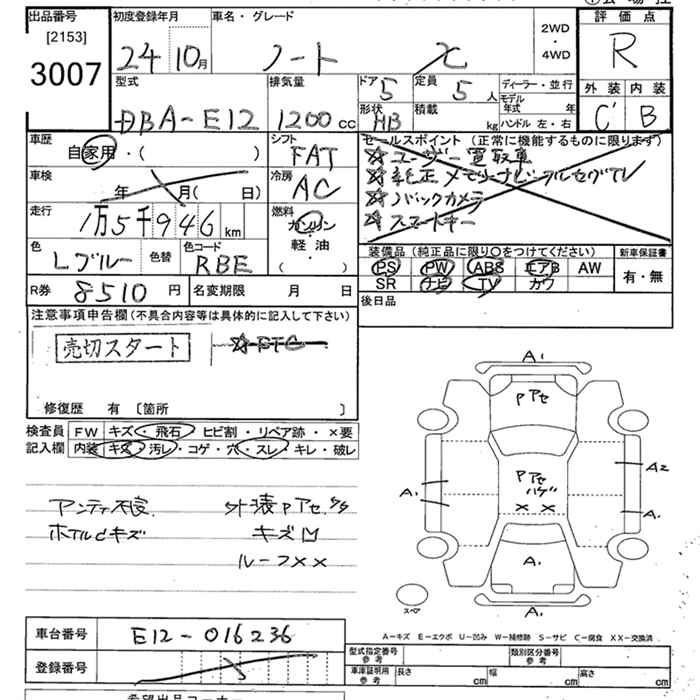 出品番号 初度登録年月 車名・グレード 評価点
[2153] 24 10月 ノート X 2WD・4WD R
3007
型式 排気量 ドア 5 定員 5人 ディーラー・並行 外装 内装
DBA-E12 1200cc 形状 HB 積載 kg モデル年式 年 ハンドル 左・右 C' B
車歴 自家用・( ) シフト FAT セールスポイント (正常に機能するものに限ります)
☆ユーザー買取車
車検 年 月( 日) 冷房 AC ☆純正メモリーナビ・フルセグTV
☆バックカメラ
走行 1万5千946km 燃料 ガソリン・軽油・( ) ☆スマートキー
色 Lブルー 色替 色コード RBE 装備品 (純正品に限り○をつけてください) 新車保証書
PS PW ABS エアB AW 有・無
SR ナビ TV カワ
R券 8510円 名変期限 月 日 後日品
注意事項申告欄(不具合内容等は具体的に記入して下さい)
売切スタート ☆ETC
修復歴 有 〔箇所 〕
検査員 FW キズ・飛石・ヒビ割・リペア跡・×要
記入欄 内装 キズ・汚レ・コゲ・穴・スレ・キレ・破レ
A1
Pアセ
Pアセ
ハゲ
× ×
A2
A1
A.
A.
A1
スペア
アンテナ不良 外装Pアセ
ホイルキズ キズ凹
ルーフ××
A−キズ E−エクボ U−凹み W−補修跡 S−サビ C−腐食 XX−交換済
車台番号 E12-016236
型式指定番号 参考 類別区分番号 参考
登録番号
車庫証明用 参考 長さ cm 幅 cm 高さ cm
希望出品コーナー